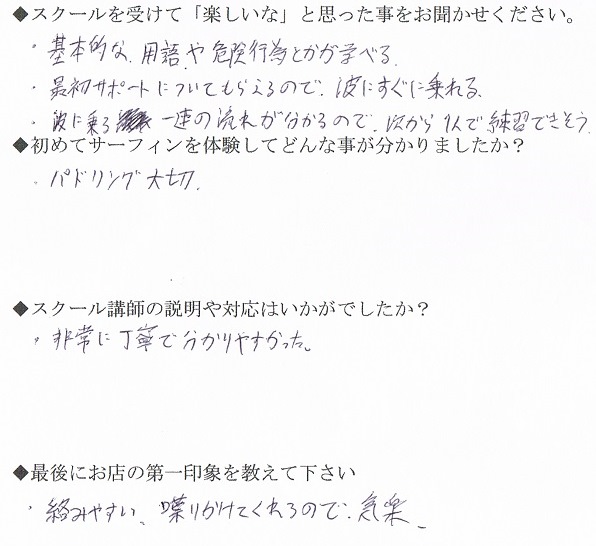 ◆スクールを受けて「楽しいな」と思った事をお聞かせください。
・基本的な、用語や危険行為とかが学べる。
・最初サポートについてもらえるので、波にすぐに乗れる。
・波に乗る 一連の流れが分かるので、次から1人で練習できそう。
◆初めてサーフィンを体験してどんな事が分かりましたか？
・パドリング大切。
◆スクール講師の説明や対応はいかがでしたか？
・非常に丁寧で分かりやすかった。
◆最後にお店の第一印象を教えて下さい
・絡みやすい、喋りかけてくれるので、気楽。